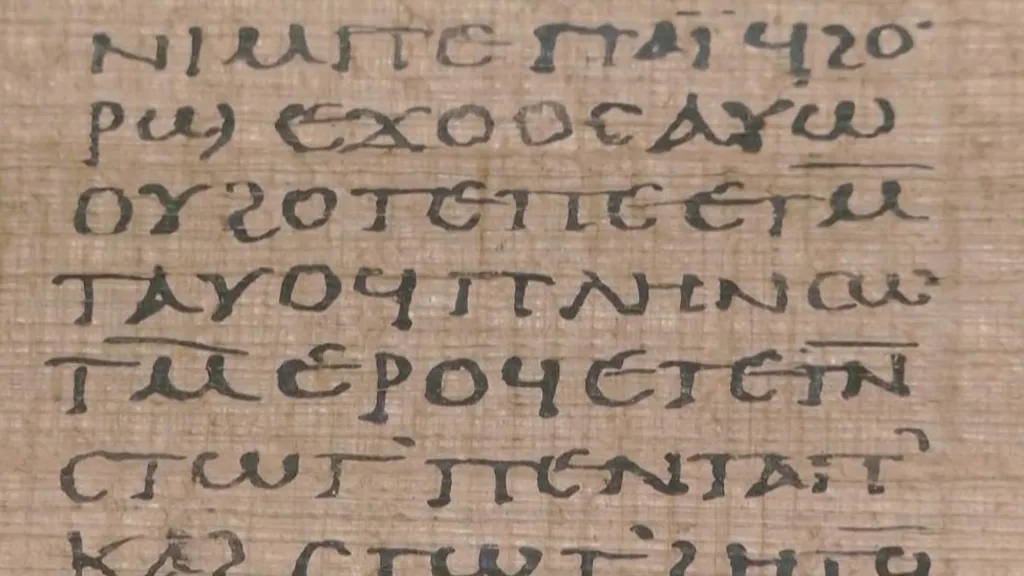 ⲛⲓⲙⲡⲉ ⲡⲁⲓ̈ ϥϩⲟ
ⲣϣ ⲉϫⲟⲟⲥ ⲁⲩⲱ
ⲟⲩϩⲟⲧⲉⲡⲉ ⲉⲧⲙ̅
ⲧⲁⲩⲟϥ ⲡⲗⲏⲛ ⲥⲱ
ⲧⲙ̅ ⲉⲣⲟϥ ⲉⲧⲉⲧⲛ̅
ⲥⲧⲱⲧ ⲡⲉⲛⲧⲁⲡ
ⲕⲁϩ ⲥⲧⲱⲧ ϩⲏⲧϥ̅